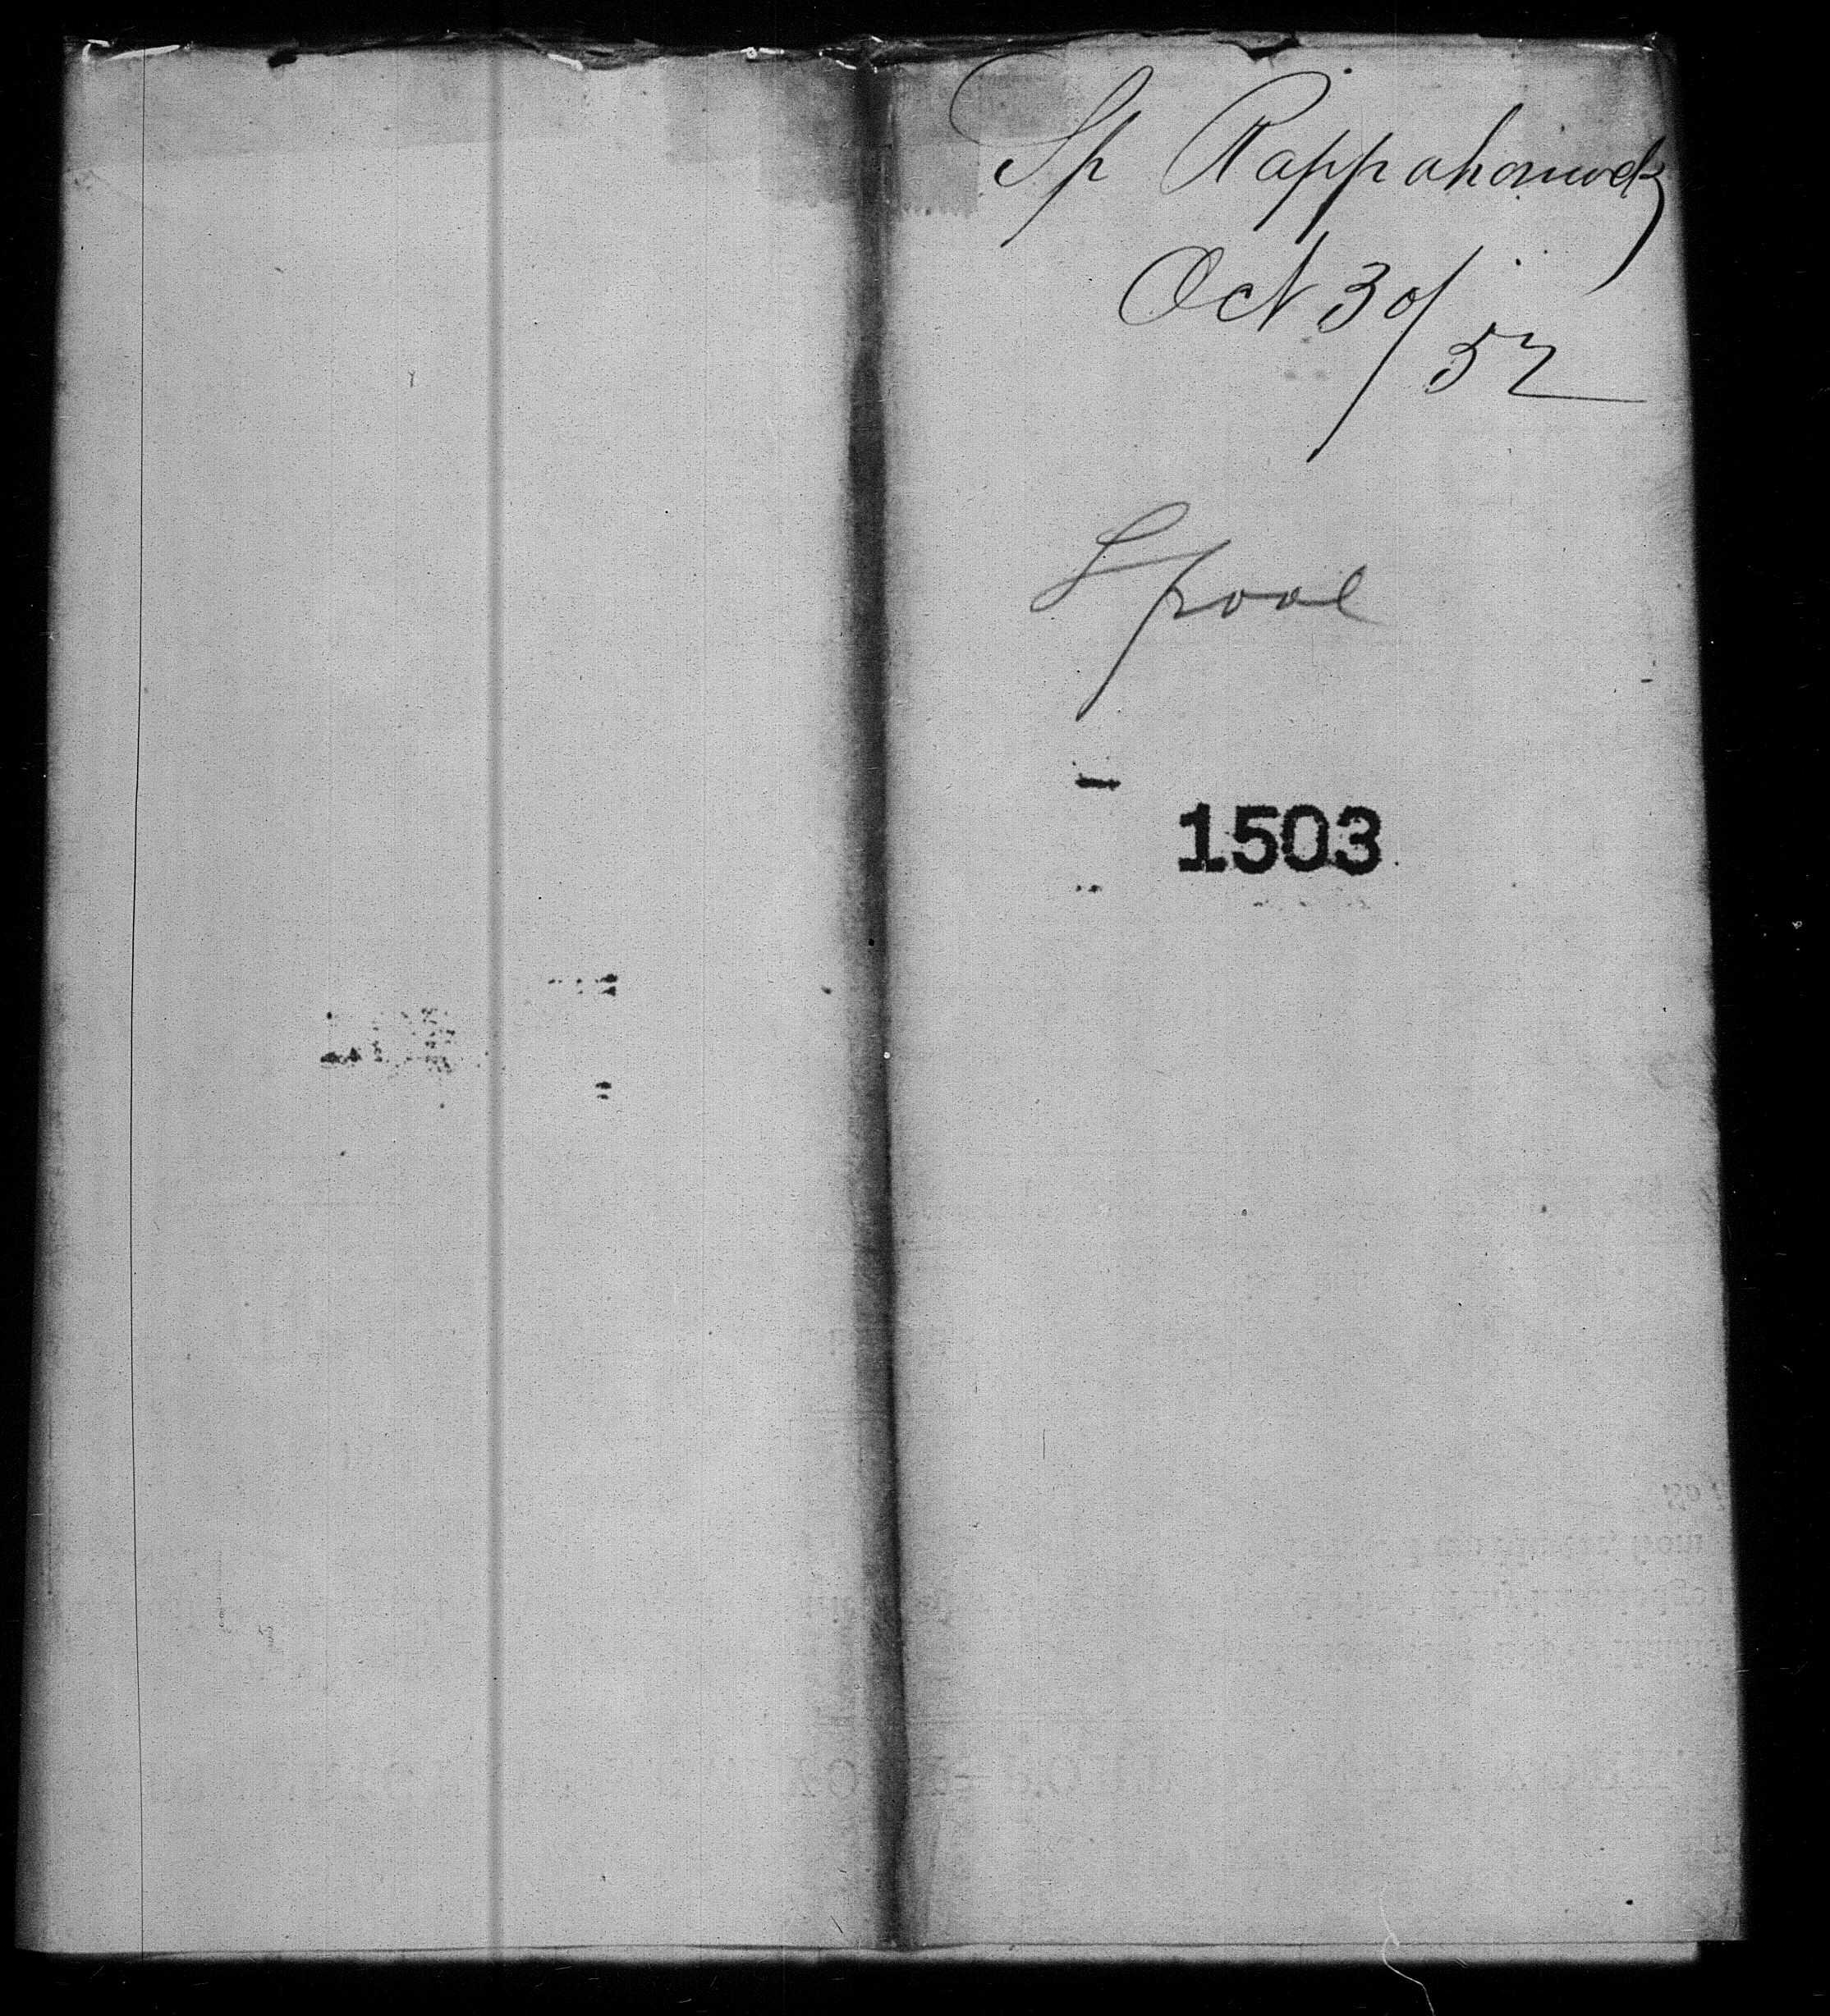 Sh Rappahonnock
Oct 30/
52
Lpool
1503